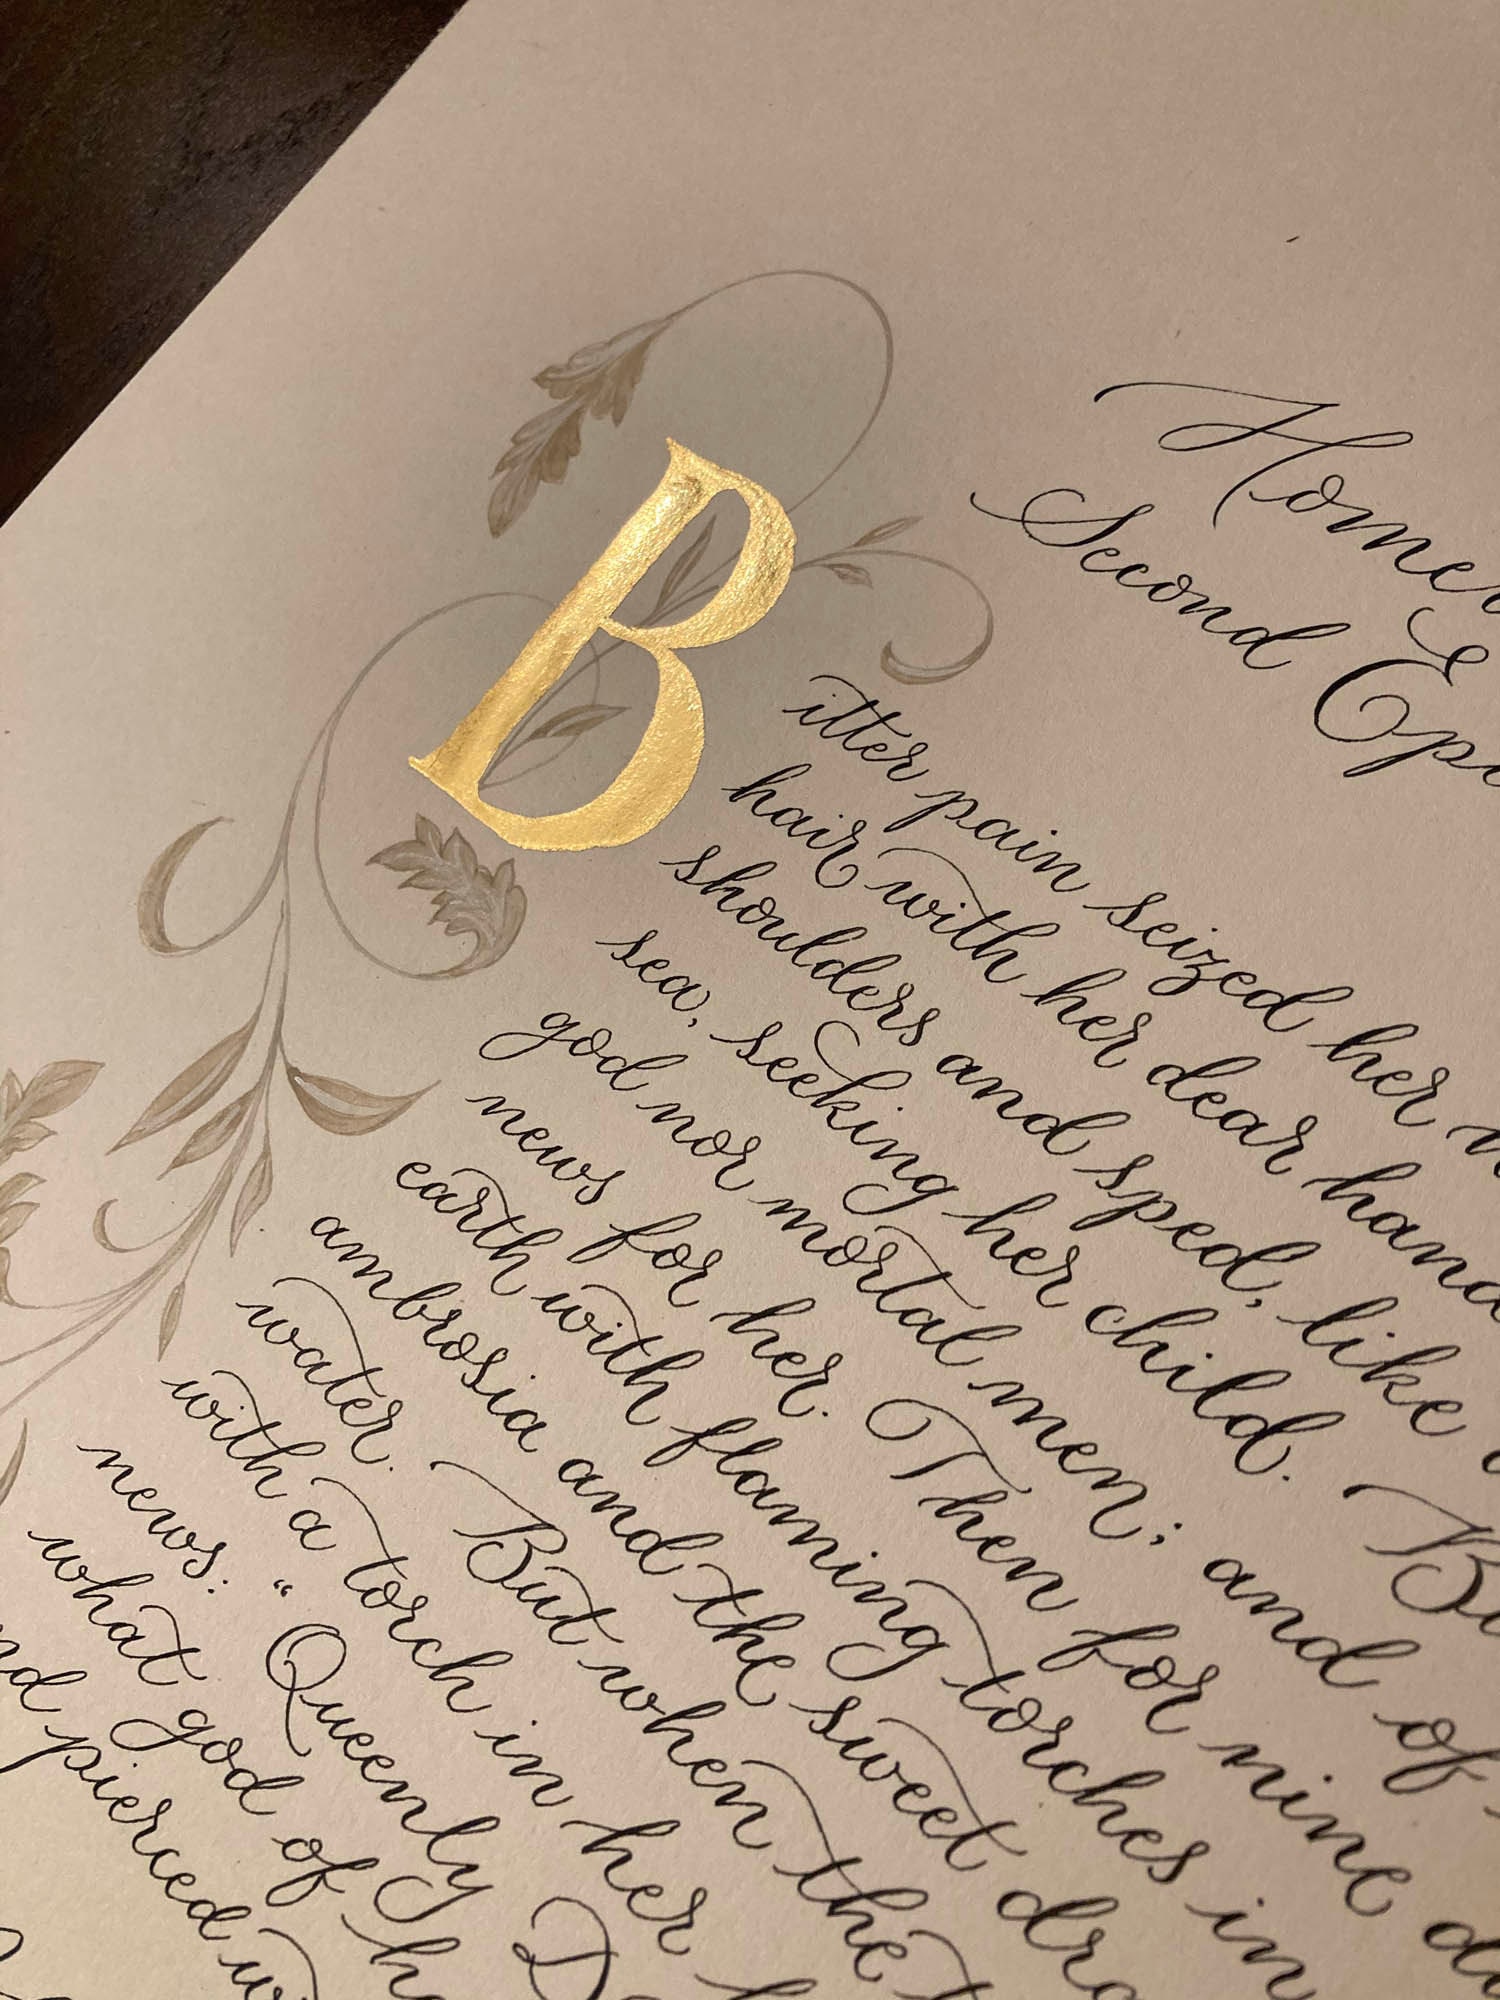 Homer
Second
Bitter pain seized her
hair with her dear
shoulders and sped, like
sea, seeking her child.
god nor mortal men; and of
news for her. Then for nine
earth with flaming torches in
ambrosia and the sweet
water. But when the
with a torch in her
news: "Queenly
what god of
pierced